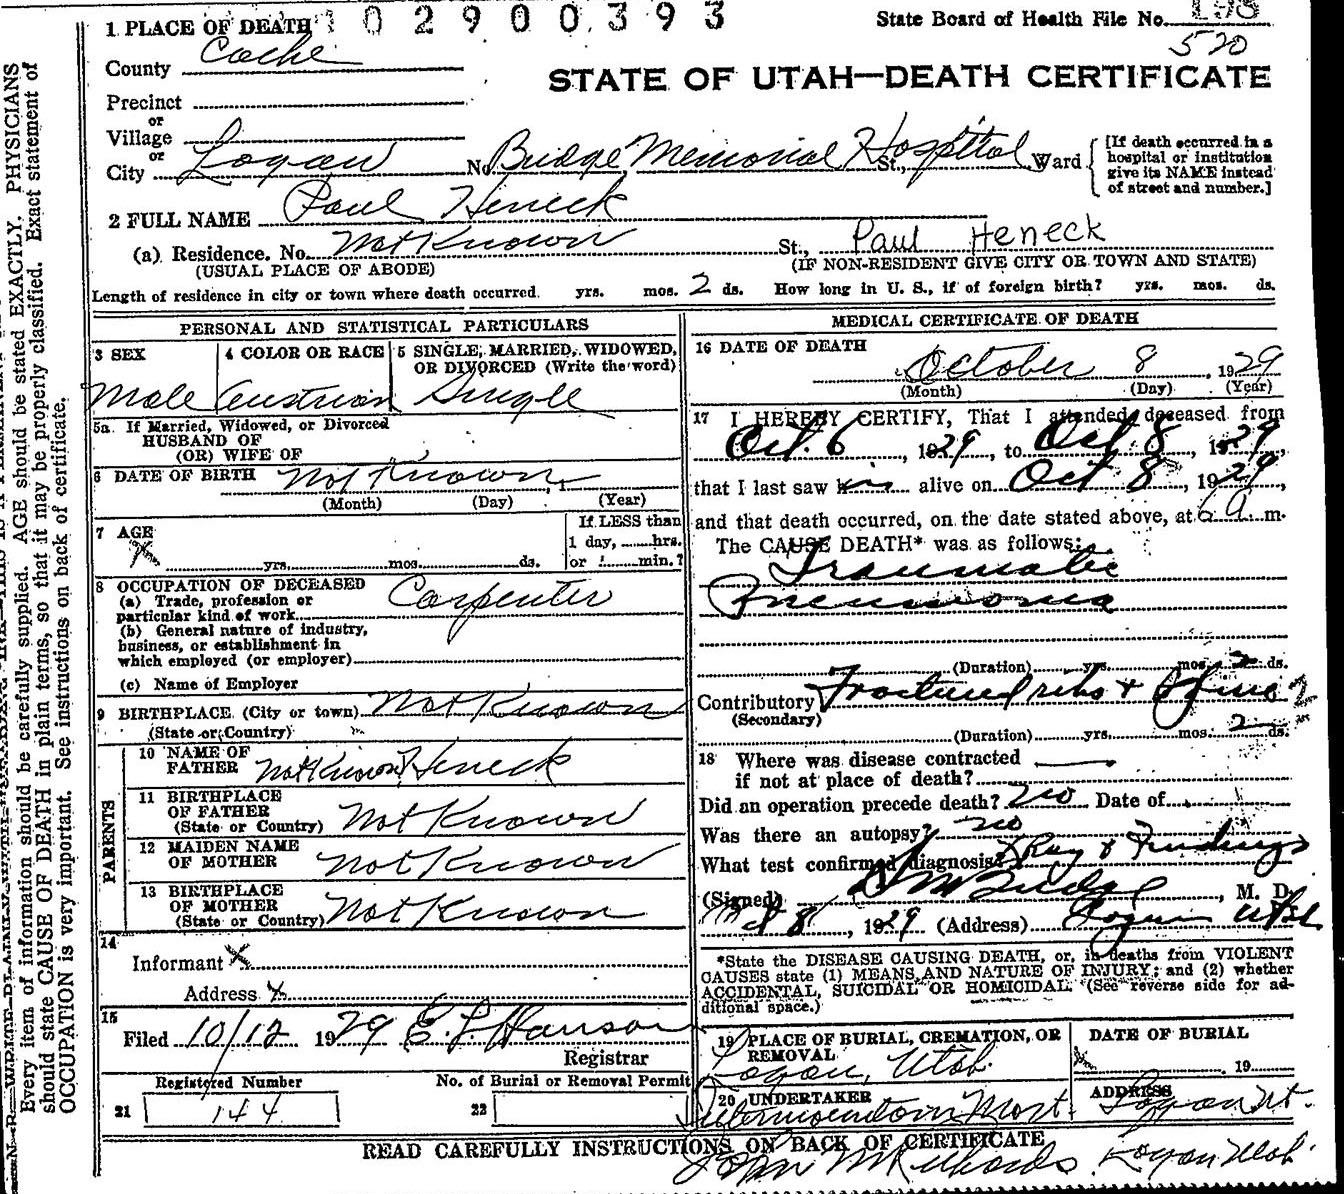 1 PLACE OF DEATH
1 0 2 9 0 0 3 9 3
State Board of Health File No. 198
520
County Cache
STATE OF UTAH—DEATH CERTIFICATE
Precinct
or
Village
or
City Logan No. Budge Memorial Hospital St., Ward
[If death occurred in a hospital or institution give its NAME instead of street and number.]
2 FULL NAME Paul Heneck
(a) Residence. No. Not Known St., Paul Heneck
(USUAL PLACE OF ABODE) (IF NON-RESIDENT GIVE CITY OR TOWN AND STATE)
Length of residence in city or town where death occurred. yrs. mos. 2 ds. How long in U. S., if of foreign birth? yrs. mos. ds.
PERSONAL AND STATISTICAL PARTICULARS
3 SEX 4 COLOR OR RACE 5 SINGLE, MARRIED, WIDOWED,
OR DIVORCED (Write the word)
Male Austrian Single
5a. If Married, Widowed, or Divorced
HUSBAND OF
(OR) WIFE OF
6 DATE OF BIRTH Not Known, 1
(Month) (Day) (Year)
7 AGE If LESS than
1 day, ......hrs.
X yrs. mos. ds. or ......min.?
8 OCCUPATION OF DECEASED Carpenter
(a) Trade, profession or
particular kind of work
(b) General nature of industry,
business, or establishment in
which employed (or employer)
(c) Name of Employer
9 BIRTHPLACE (City or town) Not Known
(State or Country)
PARENTS
10 NAME OF
FATHER Not Known Heneck
11 BIRTHPLACE
OF FATHER
(State or Country) Not Known
12 MAIDEN NAME
OF MOTHER Not Known
13 BIRTHPLACE
OF MOTHER
(State or Country) Not Known
14
Informant X
Address X
15
Filed 10/12 1929 E. L. Hanson
Registrar
Registered Number No. of Burial or Removal Permit
21 144 22
MEDICAL CERTIFICATE OF DEATH
16 DATE OF DEATH
October 8, 1929
(Month) (Day) (Year)
17 I HEREBY CERTIFY, That I attended deceased from
Oct. 6, 1929, to Oct 8, 1929,
that I last saw him alive on Oct 8, 1929,
and that death occurred, on the date stated above, at 6 a m.
The CAUSE DEATH* was as follows:
Traumatic
Pneumonia
(Duration) yrs. mos. 2 ds.
Contributory Fractured ribs + Spine 2
(Secondary)
(Duration) yrs. mos. 2 ds.
18 Where was disease contracted
if not at place of death?
Did an operation precede death? no Date of
Was there an autopsy? no
What test confirmed diagnosis? X Ray & Findings
(Signed) D M Budge, M. D.
Oct 8, 1929 (Address) Logan Utah
*State the DISEASE CAUSING DEATH, or, in deaths from VIOLENT
CAUSES state (1) MEANS AND NATURE OF INJURY; and (2) whether
ACCIDENTAL, SUICIDAL OR HOMICIDAL. (See reverse side for ad-
ditional space.)
19 PLACE OF BURIAL, CREMATION, OR
REMOVAL
Logan, Utah
DATE OF BURIAL
X 19
20 UNDERTAKER
Intermountain Mort.
ADDRESS
Logan Ut.
READ CAREFULLY INSTRUCTIONS ON BACK OF CERTIFICATE
John M Richards. Logan Utah
Every item of information should be carefully supplied. AGE should be stated EXACTLY. PHYSICIANS
should state CAUSE OF DEATH in plain terms, so that it may be properly classified. Exact statement of
OCCUPATION is very important. See instructions on back of certificate.